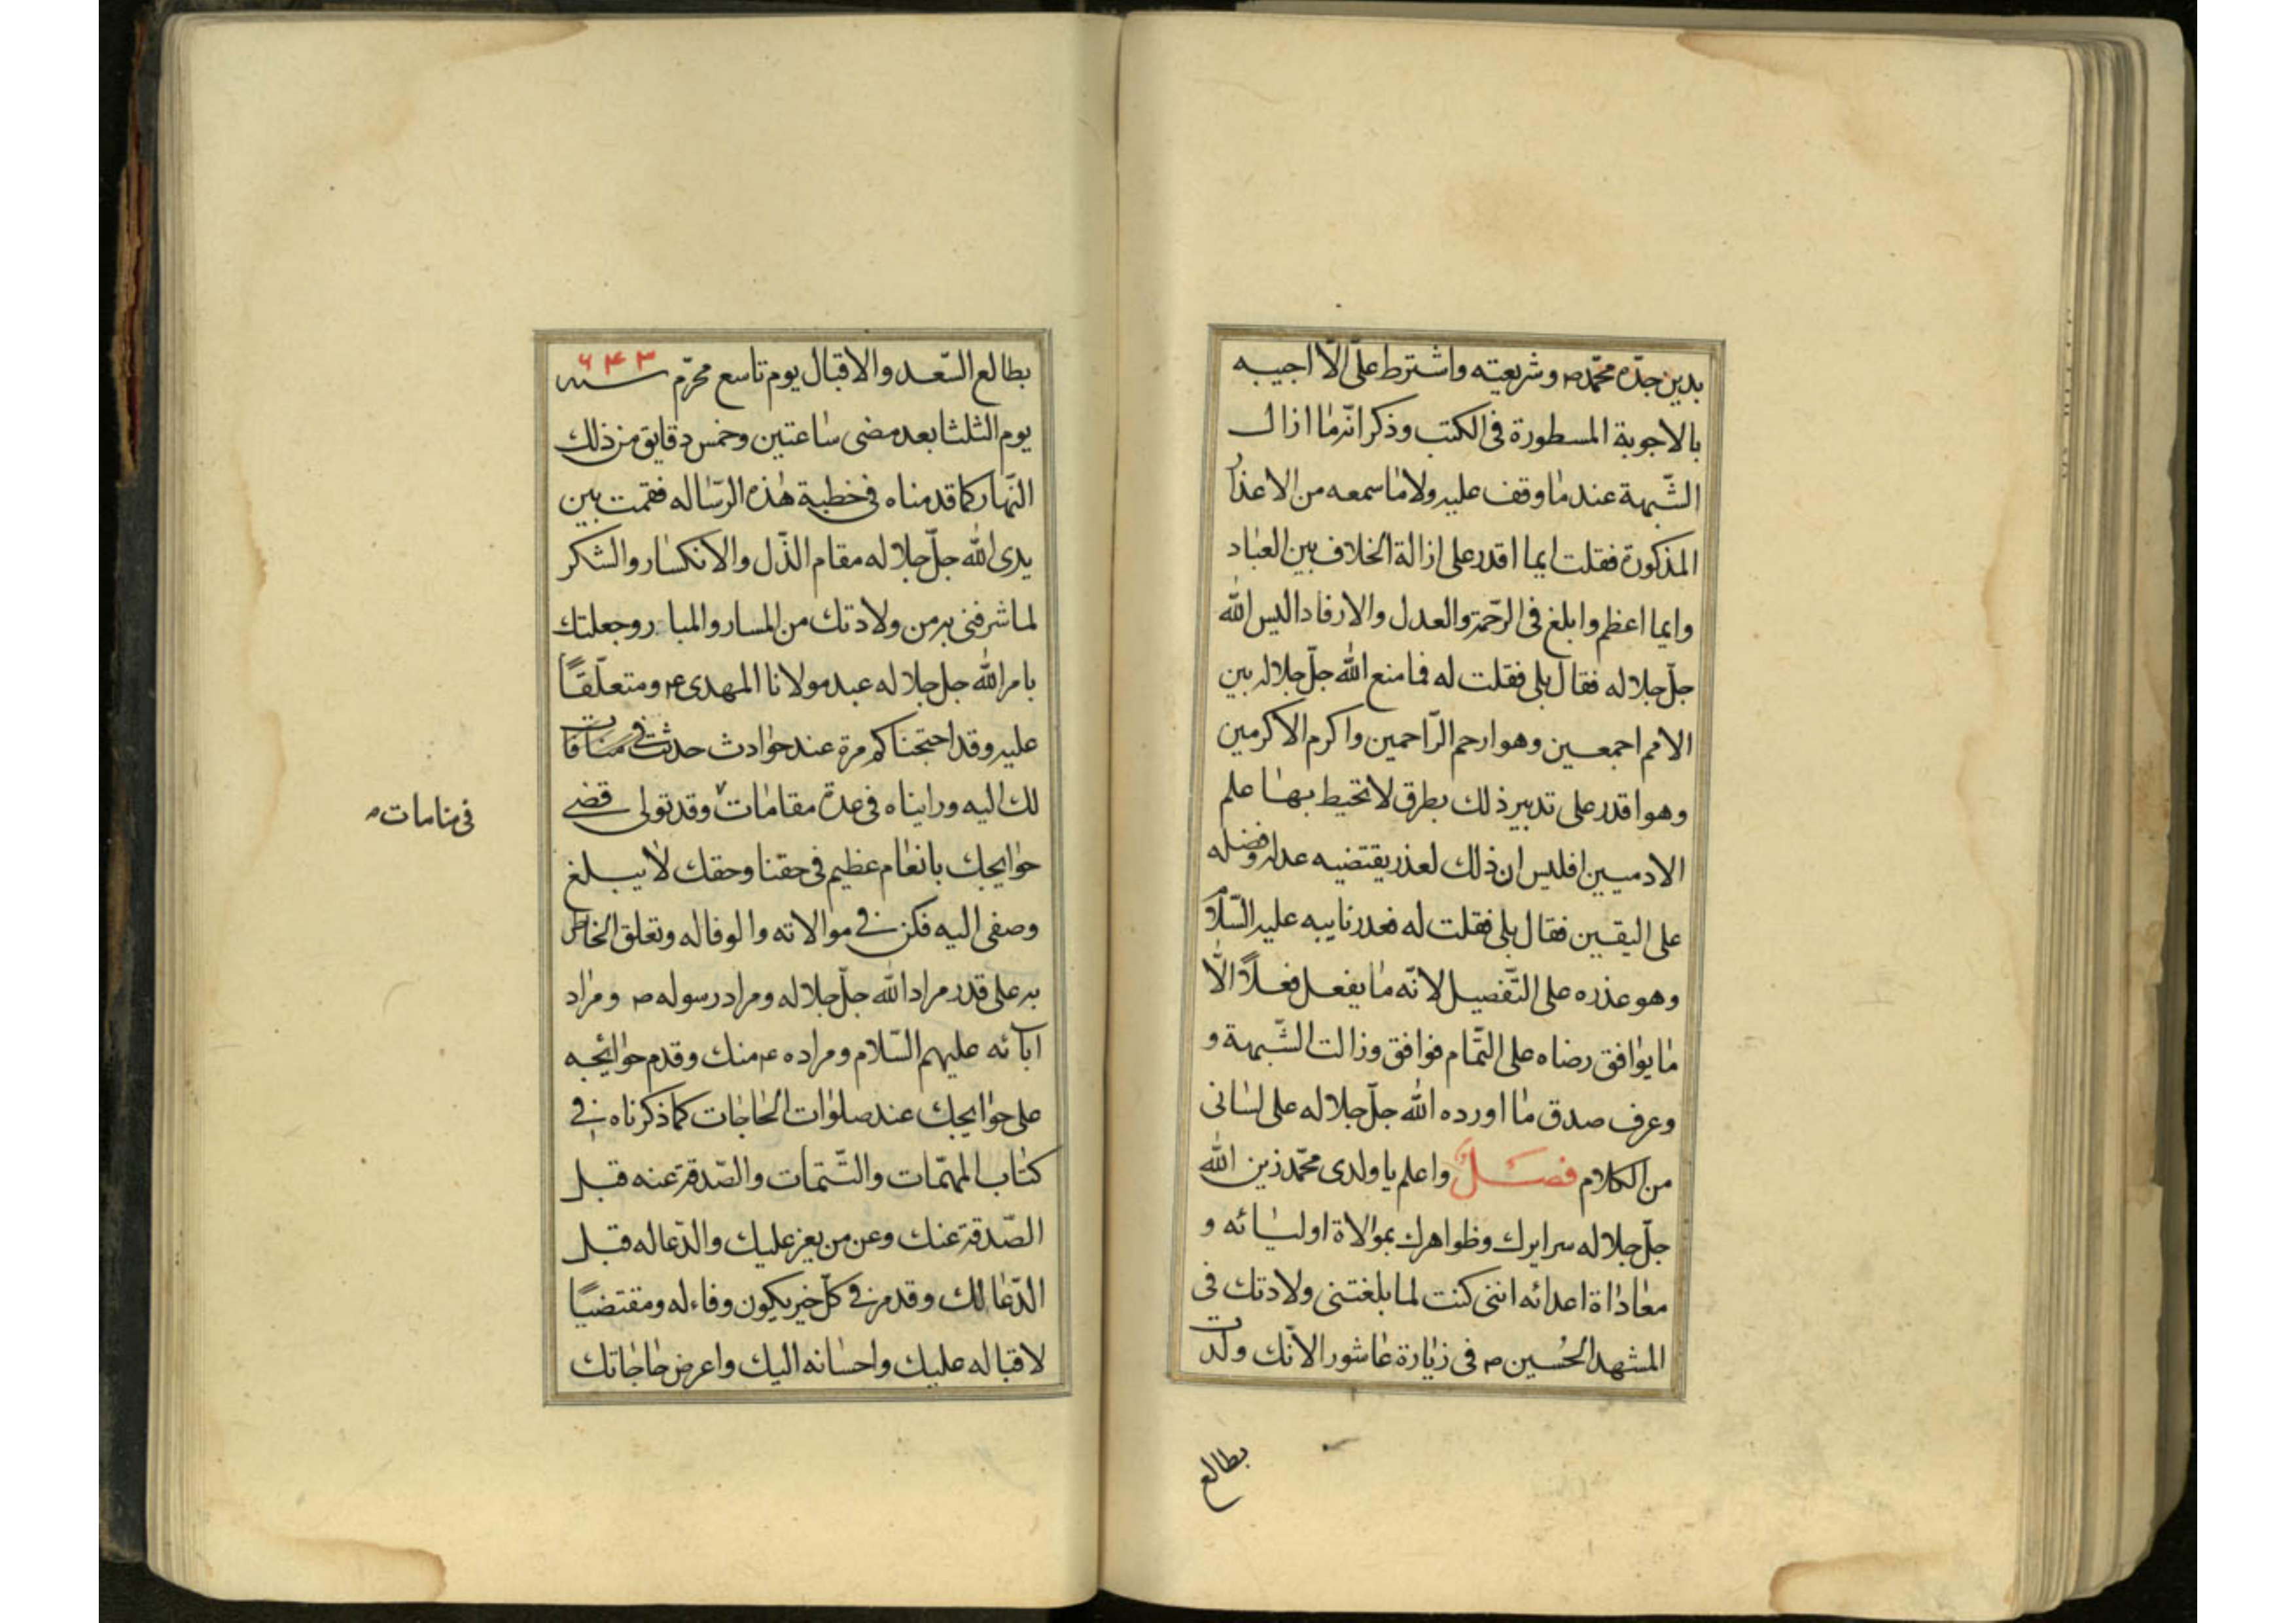 بدين جدّه محمّد ص وشريعته واشترط علىّ الّا اجيبه
بالاجوبة المسطورة فى الكتب وذكر انّه ما ازال
الشّبهة عند ما وقف عليه ولا ما سمعه من الاعذار
المذكورة فقلت ايما اقدر على ازالة الخلاف بين العباد
وايما اعظم وابلغ فى الرّحمة والعدل والارفاد اليس الله
جلّ جلاله فقال بلى فقلت له فما منع الله جلّ جلاله بين
الامم اجمعين وهو ارحم الرّاحمين واكرم الاكرمين
وهو اقدر على تدبير ذلك بطرق لا تحيط بها علم
الادميين افليس ان ذلك لعذر يقتضيه عدله وفضله
على اليقين فقال بلى فقلت له فعذر نايبه عليه السّلام
وهو عذره على التّفصيل لانّه ما يفعل فعلًا الّا
ما يوافق رضاه على التّمام فوافق وزالت الشّبهة و
وعرف صدق ما اورده الله جلّ جلاله على لسانى
من الكلام فصل واعلم يا ولدى محمّد زين الله
جلّ جلاله سرايرك وظواهرك بموالاة اوليائه و
معاداة اعدائه اننى كنت لما بلغتنى ولادتك فى
المشهد الحُسين ص فى زيارة عاشورا لانّك ولدت
بطالع
بطالع السّعد والاقبال يوم تاسع محرّم سنه ٦۴۳
يوم الثلثا بعد مضى ساعتين وخمس دقايق من ذلك
النّهار كما قدمناه فى خطبة هذه الرّساله فقمت بين
يدى الله جلّ جلاله مقام الذّل والانكسار والشكر
لما شرفنى به من ولادتك من المسار والمبار وجعلتك
بامر الله جل جلاله عبد مولانا المهدى ع ومتعلّقًا
عليه وقد احتجنا كم مرة عند حوادث حدثت فى منافات
لك اليه ورايناه فى عدة مقامات وقد تولى قضے
فى منامات
حوايجك بانعام عظيم فى حقنا وحقك لا يبلغ
وصفى اليه فكن فے موالاته والوفا له وتعلق الخاطر
به على قدر مراد الله جلّ جلاله ومراد رسوله ص ومراد
آبائه عليهم السّلام ومراده ع منك وقدم حوائجه
على حوايجك عند صلوات الحاجات كما ذكرناه فے
كتاب المهمّات والتّتمات والصّدقة عنه قبل
الصّدقة عنك وعن من يعز عليك والدّعا له قبل
الدّعا لك وقدم فے كلّ خير يكون وفاء له ومقتضيًا
لاقباله عليك واحسانه اليك واعرض حاجاتك